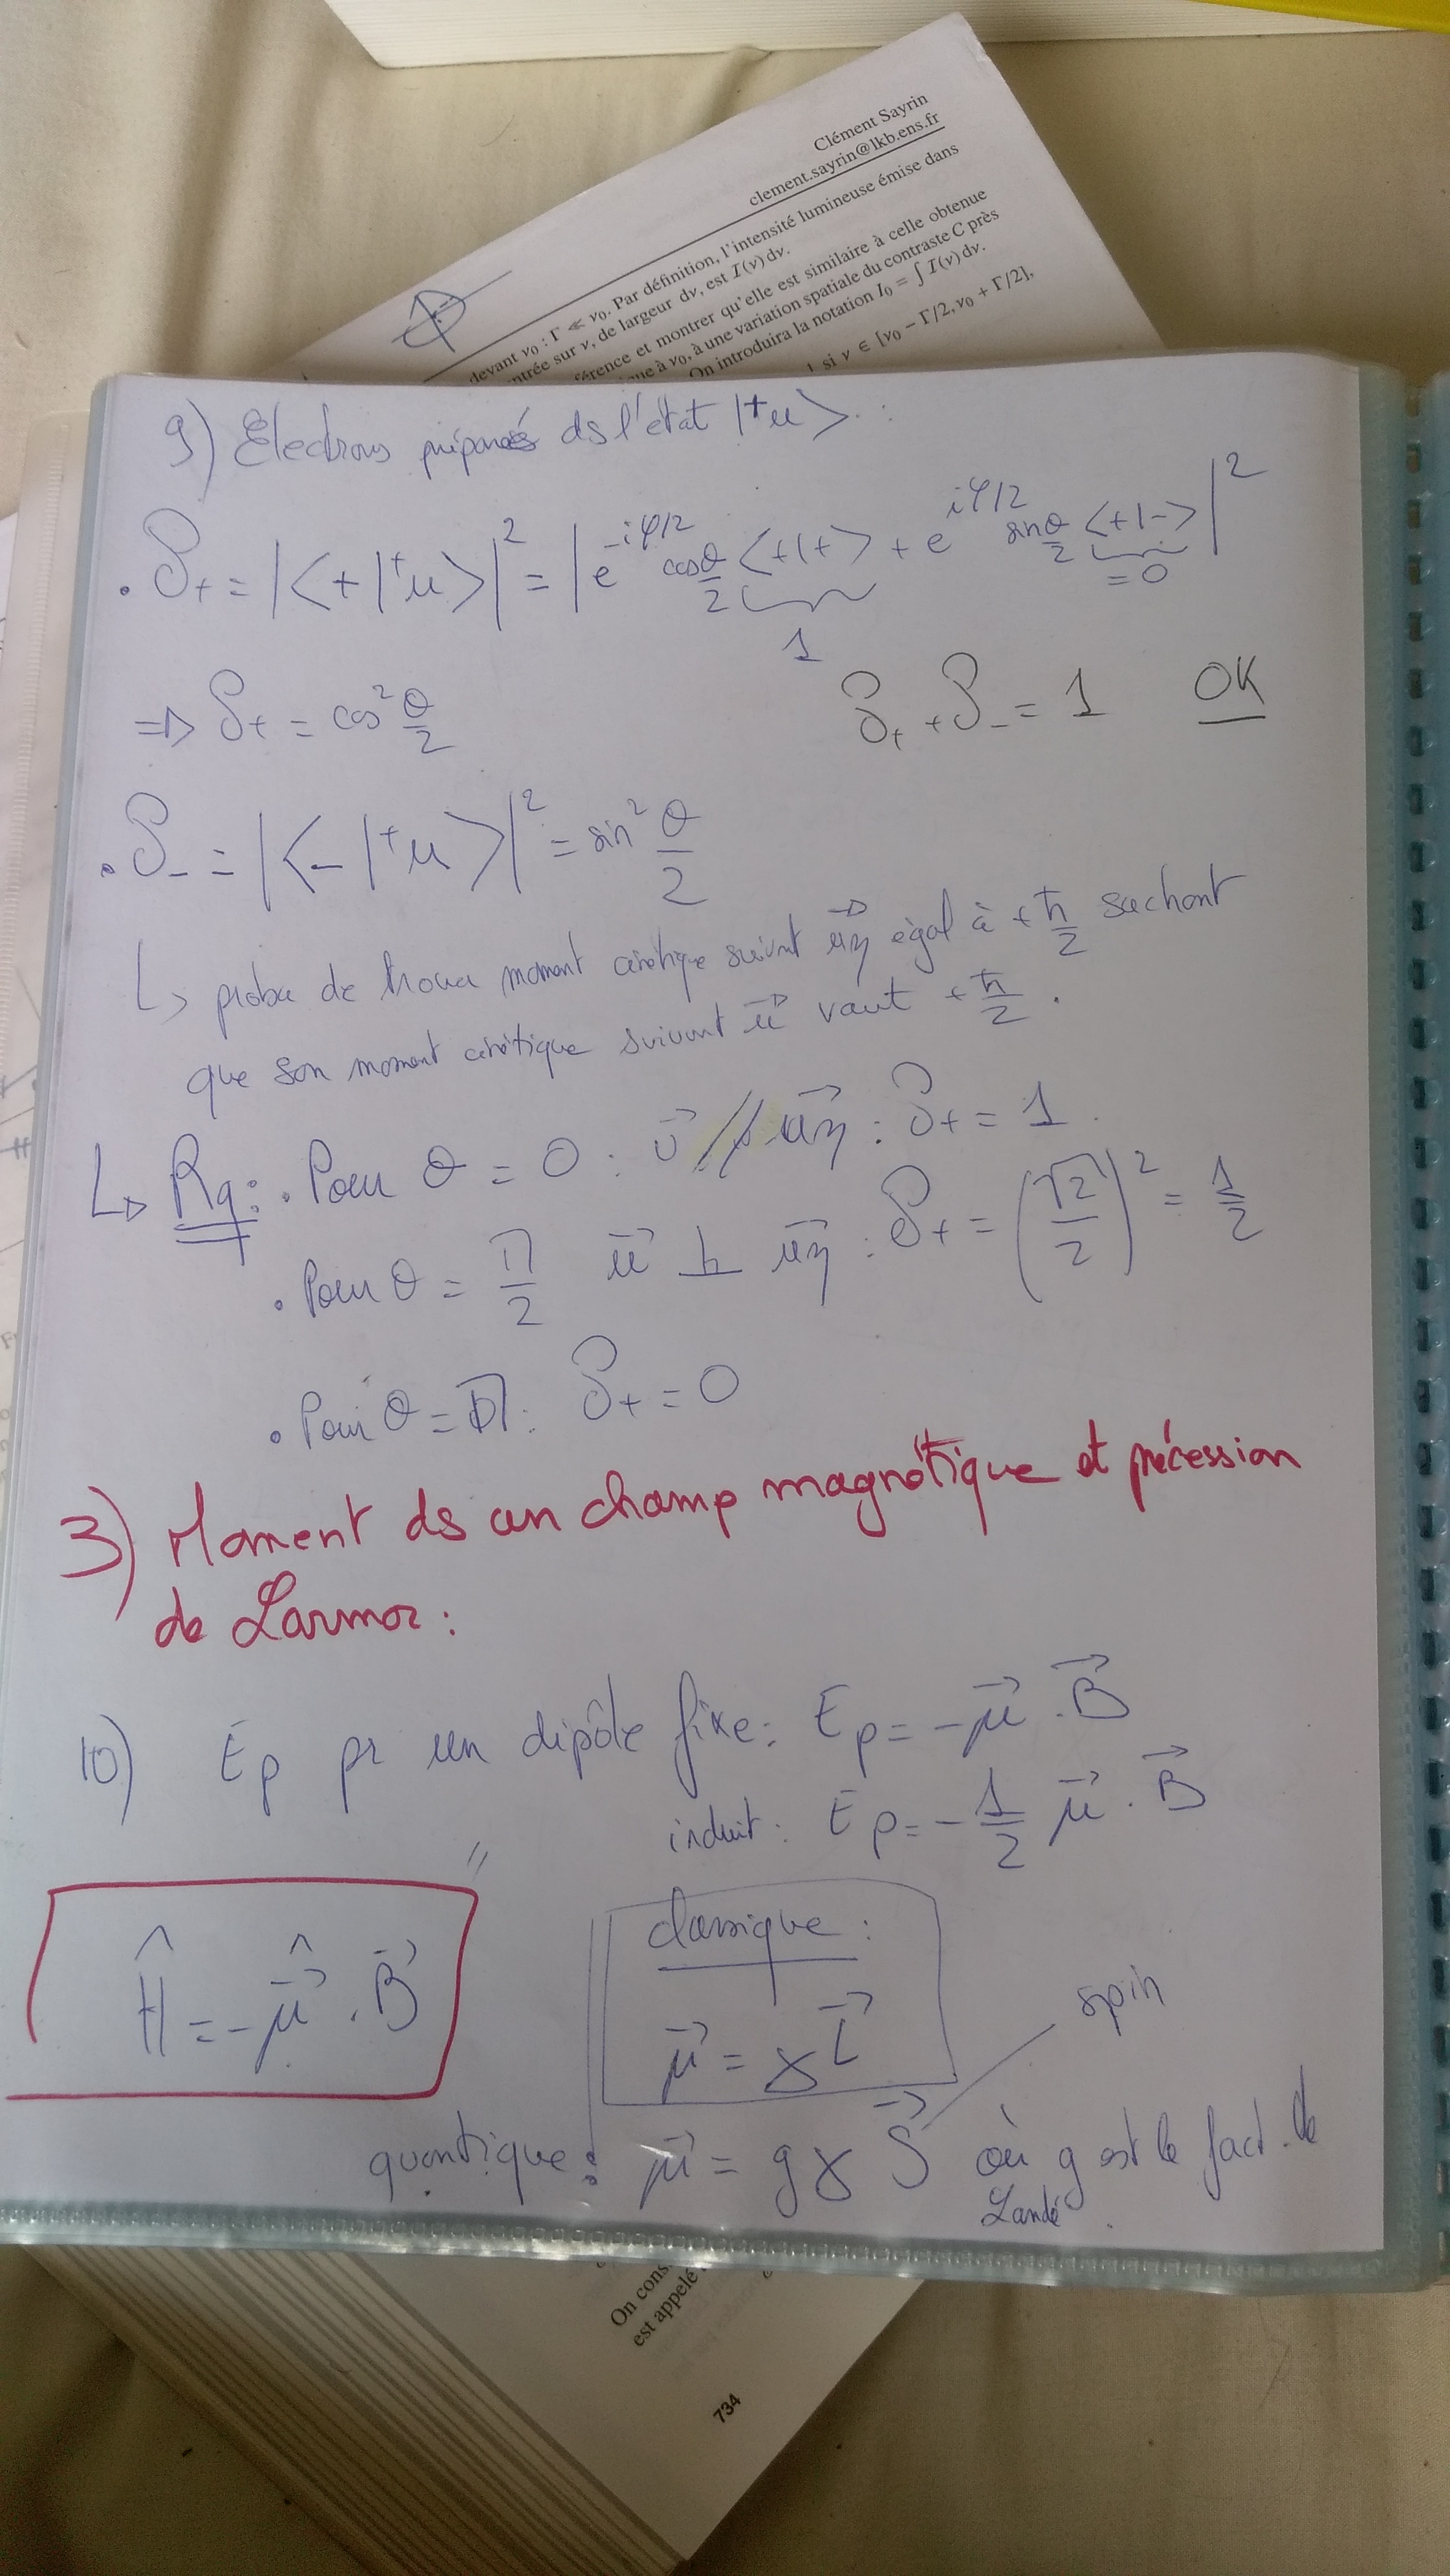 Clément Sayrin
clement.sayrin@lkb.ens.fr
devant ν₀ : Γ ≪ ν₀. Par définition, l'intensité lumineuse émise dans
ntrée sur ν, de largeur dν, est I(ν)dν.
férence et montrer qu'elle est similaire à celle obtenue
que à ν₀, à une variation spatiale du contraste C près
On introduira la notation I₀ = ∫ I(ν)dν.
1 si ν ∈ [ν₀ − Γ/2, ν₀ + Γ/2],
9) Electrons préparés ds l'état |+u> :
• P₊ = |<+|+u>|² = |e^(-iφ/2) cos θ/2 <+|+> + e^(iφ/2) sin θ/2 <+|->|²
1 = 0
=> P₊ = cos² θ/2 P₊ + P₋ = 1 OK
• P₋ = |<-|+u>|² = sin² θ/2
↳ proba de trouver moment cinétique suivant u⃗z égal à +ħ/2 sachant
que son moment cinétique suivant u⃗ vaut +ħ/2.
↳ Rq : • Pour θ = 0 : u⃗ // u⃗z : P₊ = 1.
• Pour θ = π/2 u⃗ ⊥ u⃗z : P₊ = (√2/2)² = 1/2
• Pour θ = π : P₊ = 0
3) Moment ds un champ magnétique et précession
de Larmor :
10) Ep pr un dipôle fixe : Ep = -μ⃗ . B⃗
induit : Ep = -1/2 μ⃗ . B⃗
Ĥ = -μ⃗̂ . B⃗
classique :
μ⃗ = γ L⃗
spin
quantique : μ⃗ = g γ S⃗ où g est le fact. de
Landé.
On cons
est appelé
734